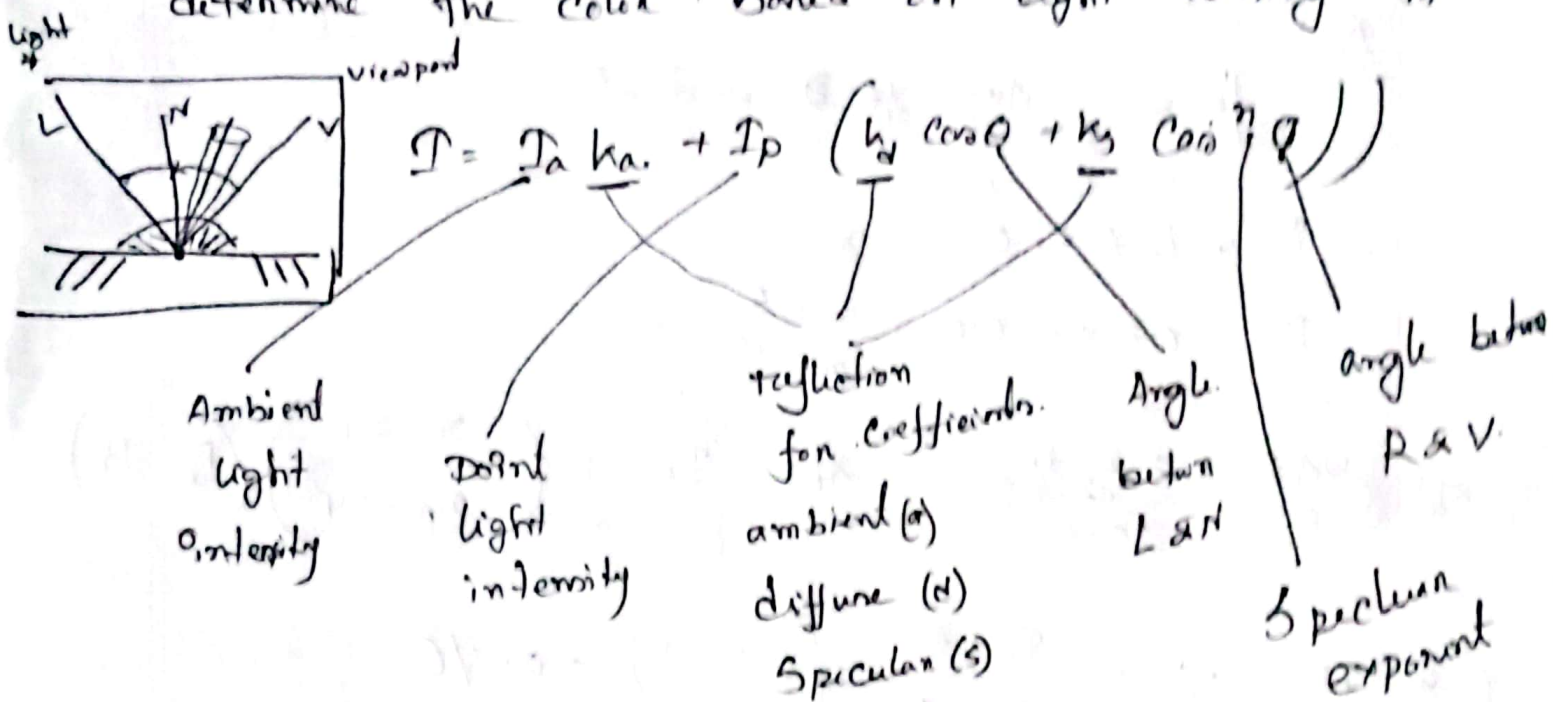 determine the color based on light
light
viewport
L N V
I = Ia ka. + Ip (kd cosθ + ks Cosⁿ θ))
Ambient
light
intensity
Point
light
intensity
reflection
for coefficients.
ambient (a)
diffuse (d)
Specular (s)
Angle
betwn
L & N
Specular
exponent
angle betwn
R & V.